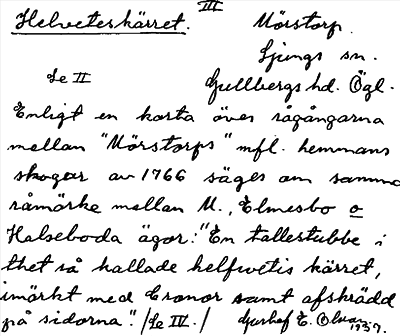 III
Helveteskärret. Mörstorp.
Ljungs sn.
Se II Gullbergs hd. Ögl.
Enligt en karta över rågångarna
mellan "Mörstorps" mfl. hemmans
skogar av 1766 säges om samma
råmärke mellan M., Elmesbo o
Halseboda ägor: "En tallestubbe i
thet så kallade helfwetis kärret,
imärkt med Cronor samt afskrädd
på sidorna". /Se IV./ E. Olvas, 1937.